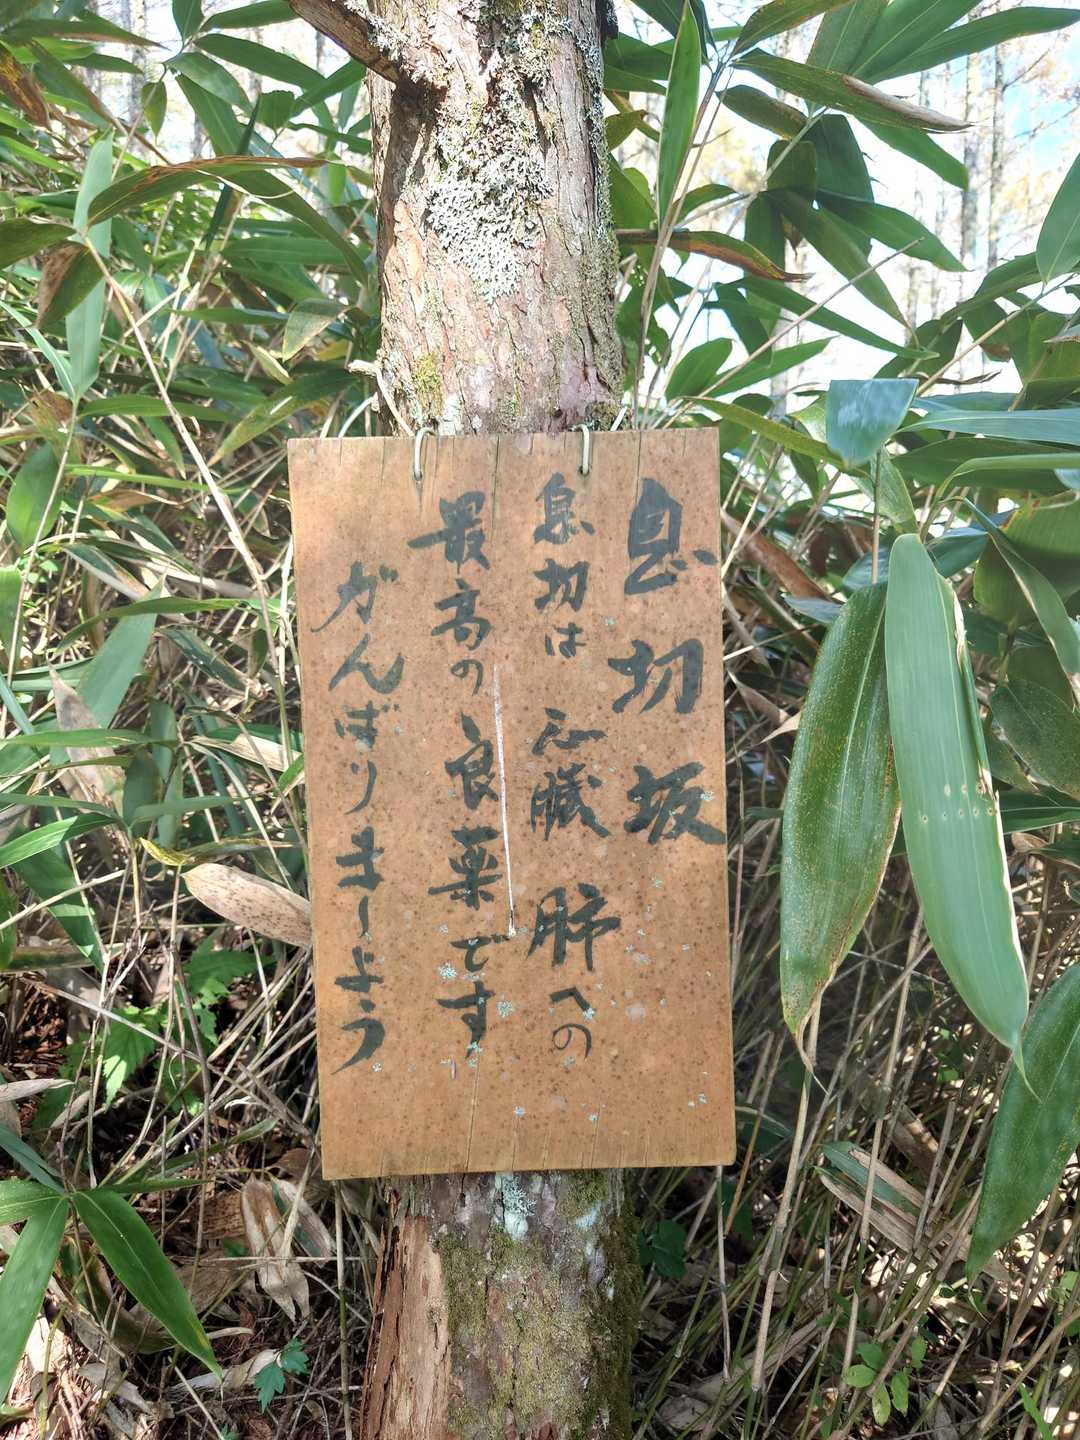 息切坂
息切は心臓肺への
最高の良薬です
がんばりましょう